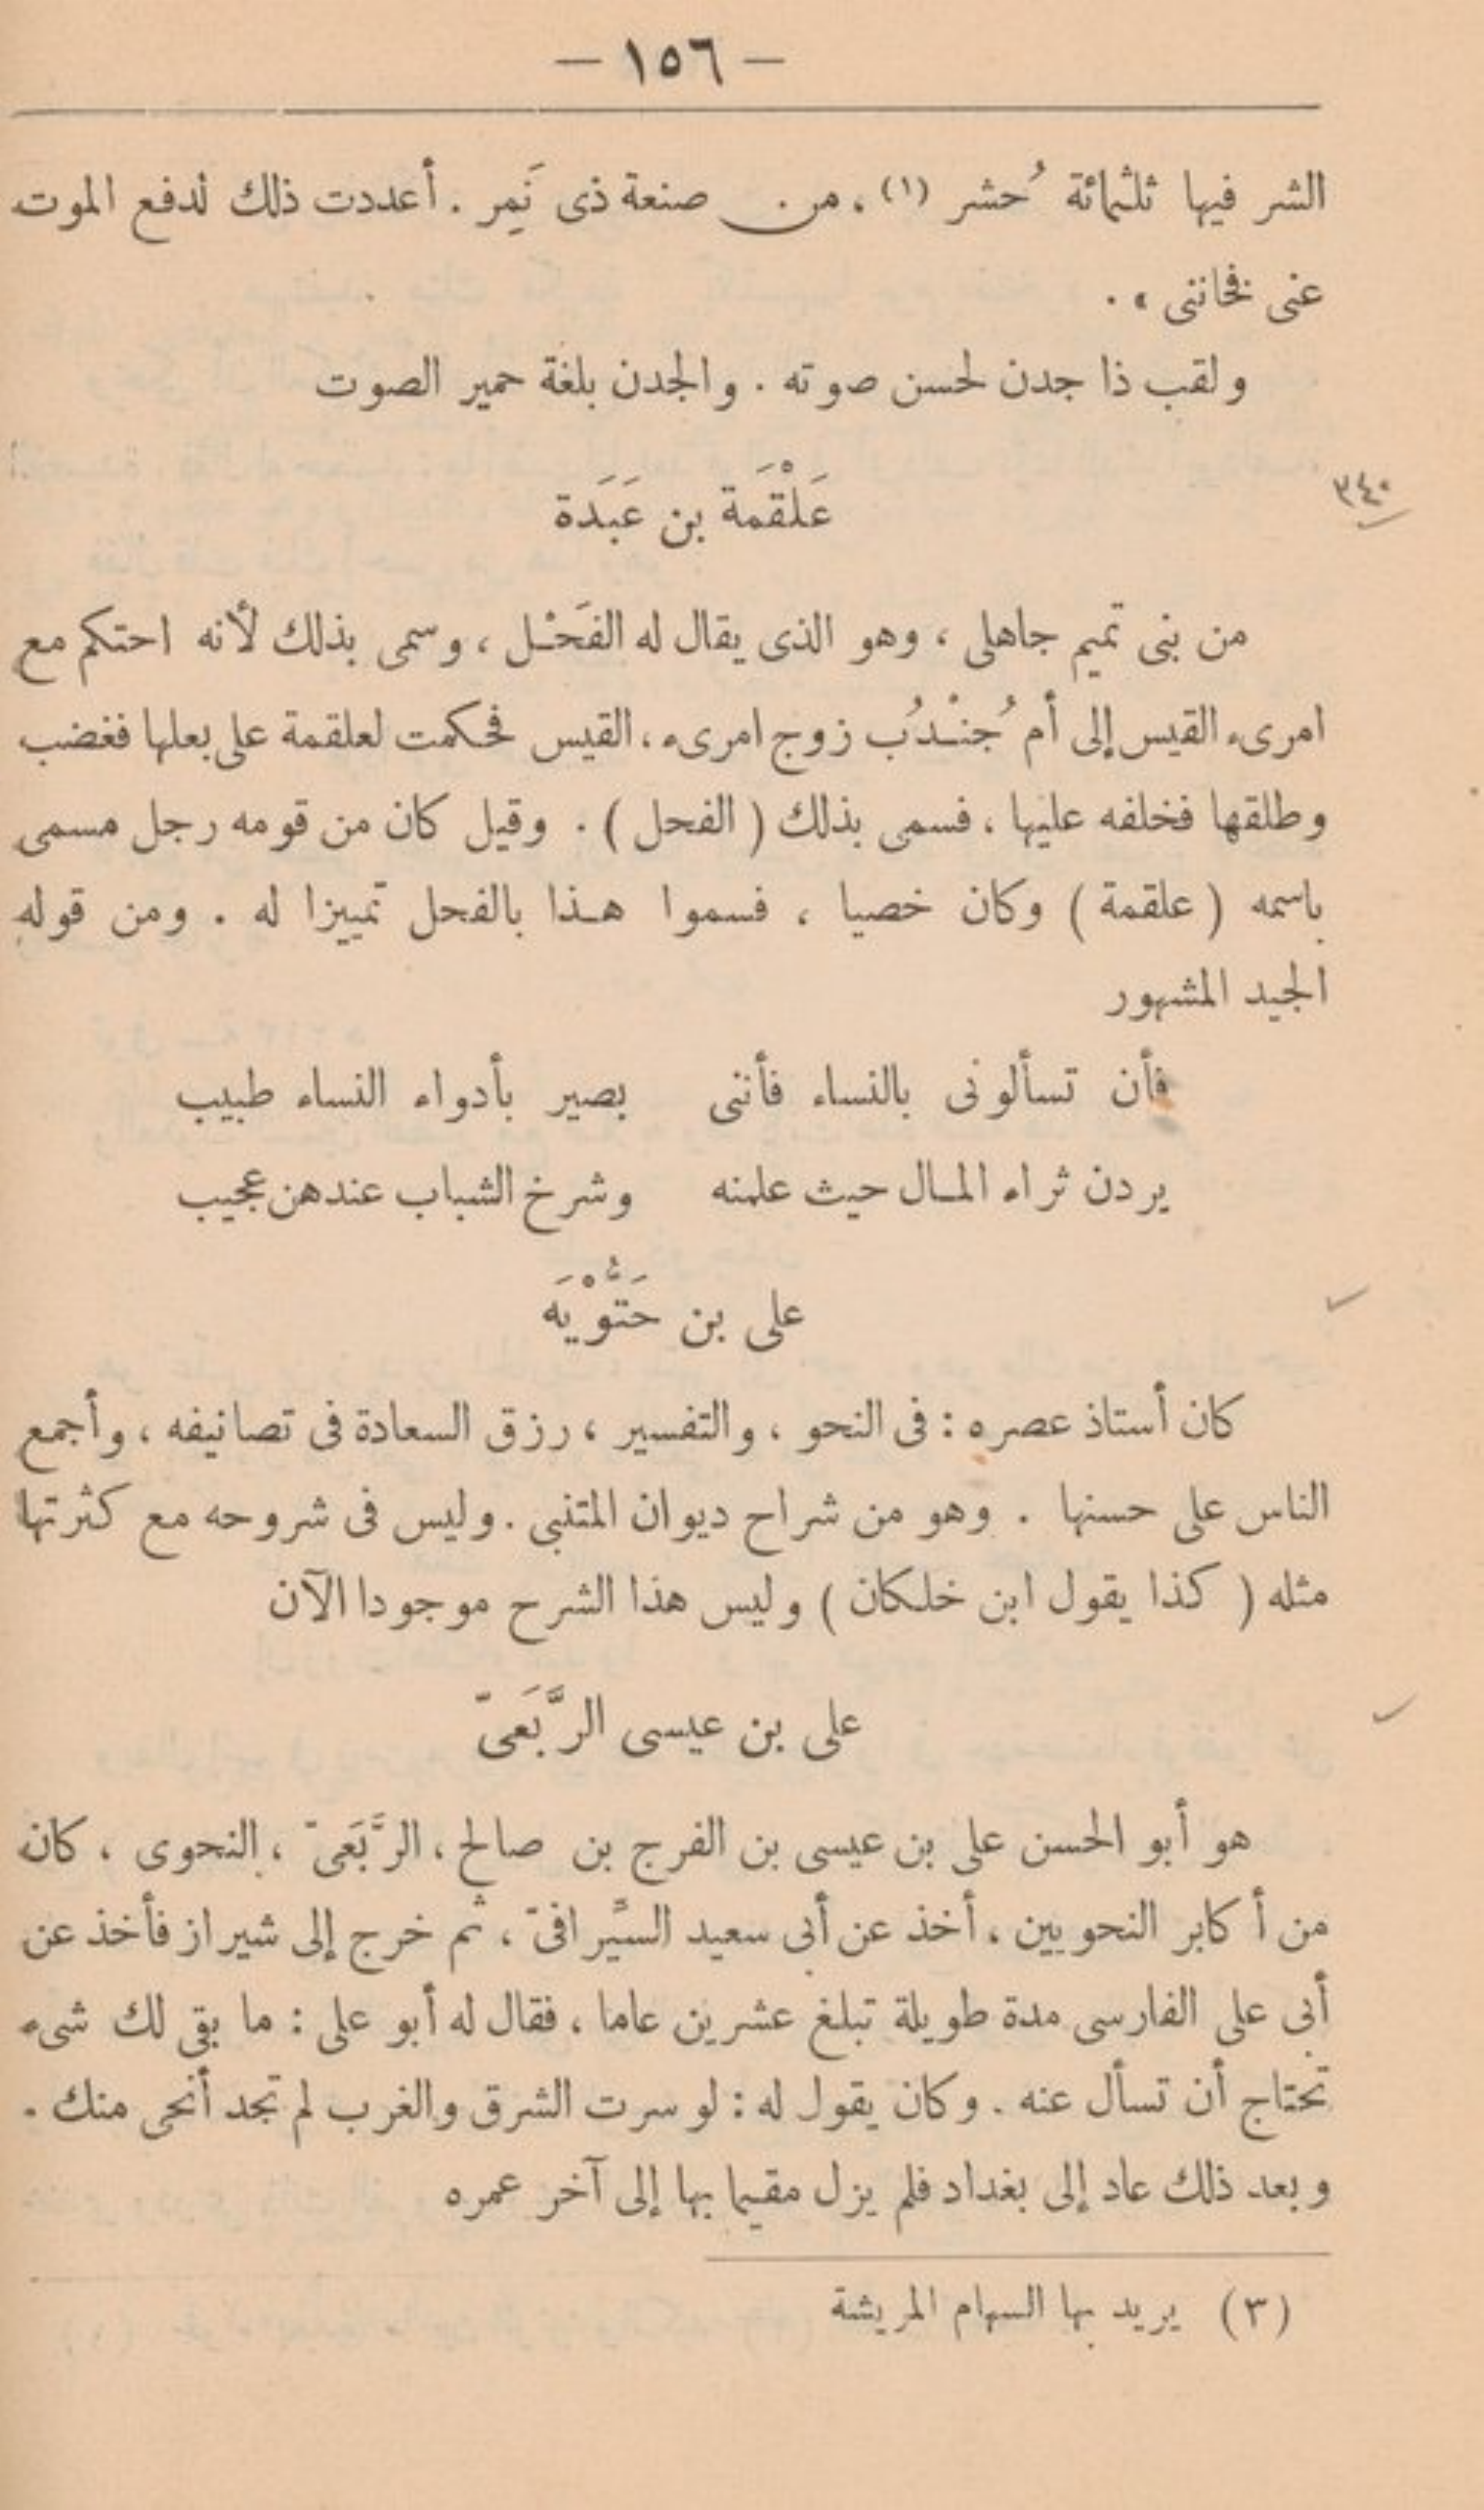 — ١٥٦ —
الشر فيها ثلثمائة حُشر (١) ، من صنعة ذى نَمِر . أعددت ذلك لدفع الموت
عنى فخاننى » .
ولقب ذا جدن لحسن صوته . والجدن بلغة حمير الصوت
٣٤٠
عَلْقَمَة بن عَبَدَة
من بنى تميم جاهلى ، وهو الذى يقال له الفَحْـل ، وسمى بذلك لأنه احتكم مع
امرىء القيس إلى أم جُنْـدُب زوج امرىء ، القيس فحكمت لعلقمة على بعلها فغضب
وطلقها فخلفه عليها ، فسمى بذلك ( الفحل ) . وقيل كان من قومه رجل مسمى
باسمه ( علقمة ) وكان خصيا ، فسموا هـذا بالفحل تمييزا له . ومن قوله
الجيد المشهور
فأن تسألونى بالنساء فأننى بصير بأدواء النساء طبيب
يردن ثراء المـال حيث علمنه وشرخ الشباب عندهن عجيب
على بن حَتُّوْيَه
كان أستاذ عصره : فى النحو ، والتفسير ، رزق السعادة فى تصانيفه ، وأجمع
الناس على حسنها . وهو من شراح ديوان المتنبى . وليس فى شروحه مع كثرتها
مثله ( كذا يقول ابن خلكان ) وليس هذا الشرح موجودا الآن
على بن عيسى الرَّبَعىّ
هو أبو الحسن على بن عيسى بن الفرج بن صالح ، الرَّبَعىّ ، النحوى ، كان
من أكابر النحويين ، أخذ عن أبى سعيد السِّيرافىّ ، ثم خرج إلى شيراز فأخذ عن
أبى على الفارسى مدة طويلة تبلغ عشرين عاما ، فقال له أبو على : ما بقى لك شىء
تحتاج أن تسأل عنه . وكان يقول له : لو سرت الشرق والغرب لم تجد أنحى منك .
وبعد ذلك عاد إلى بغداد فلم يزل مقيما بها إلى آخر عمره
(٣) يريد بها السهام المريشة